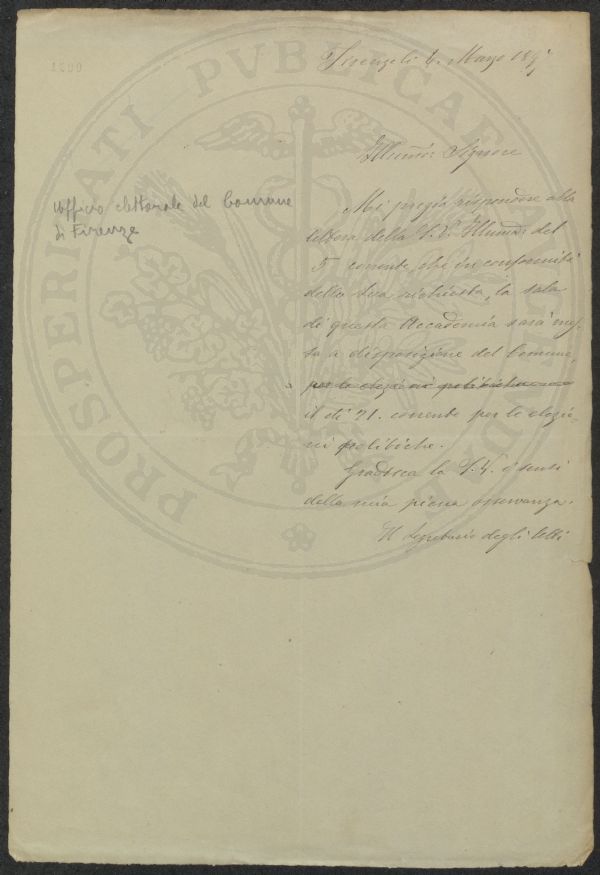 PROSPERITATI PVBLICAE AVGENDAE
Firenze li 6. Marzo 189
Illmo: Signore
Ufficio elettorale del Comune
di Firenze
Mi pregio rispondere alla
lettera della S.V. Illma: del
5 corrente che in conformità
della Sua richiesta, la sala
di questa Accademia sarà mes-
sa a disposizione del Comune,
per le elezioni politiche
il dì 21. corrente per le elezio-
ni politiche.
Gradisca la S.V. i sensi
della mia piena osservanza.
Il Segretario degli Atti